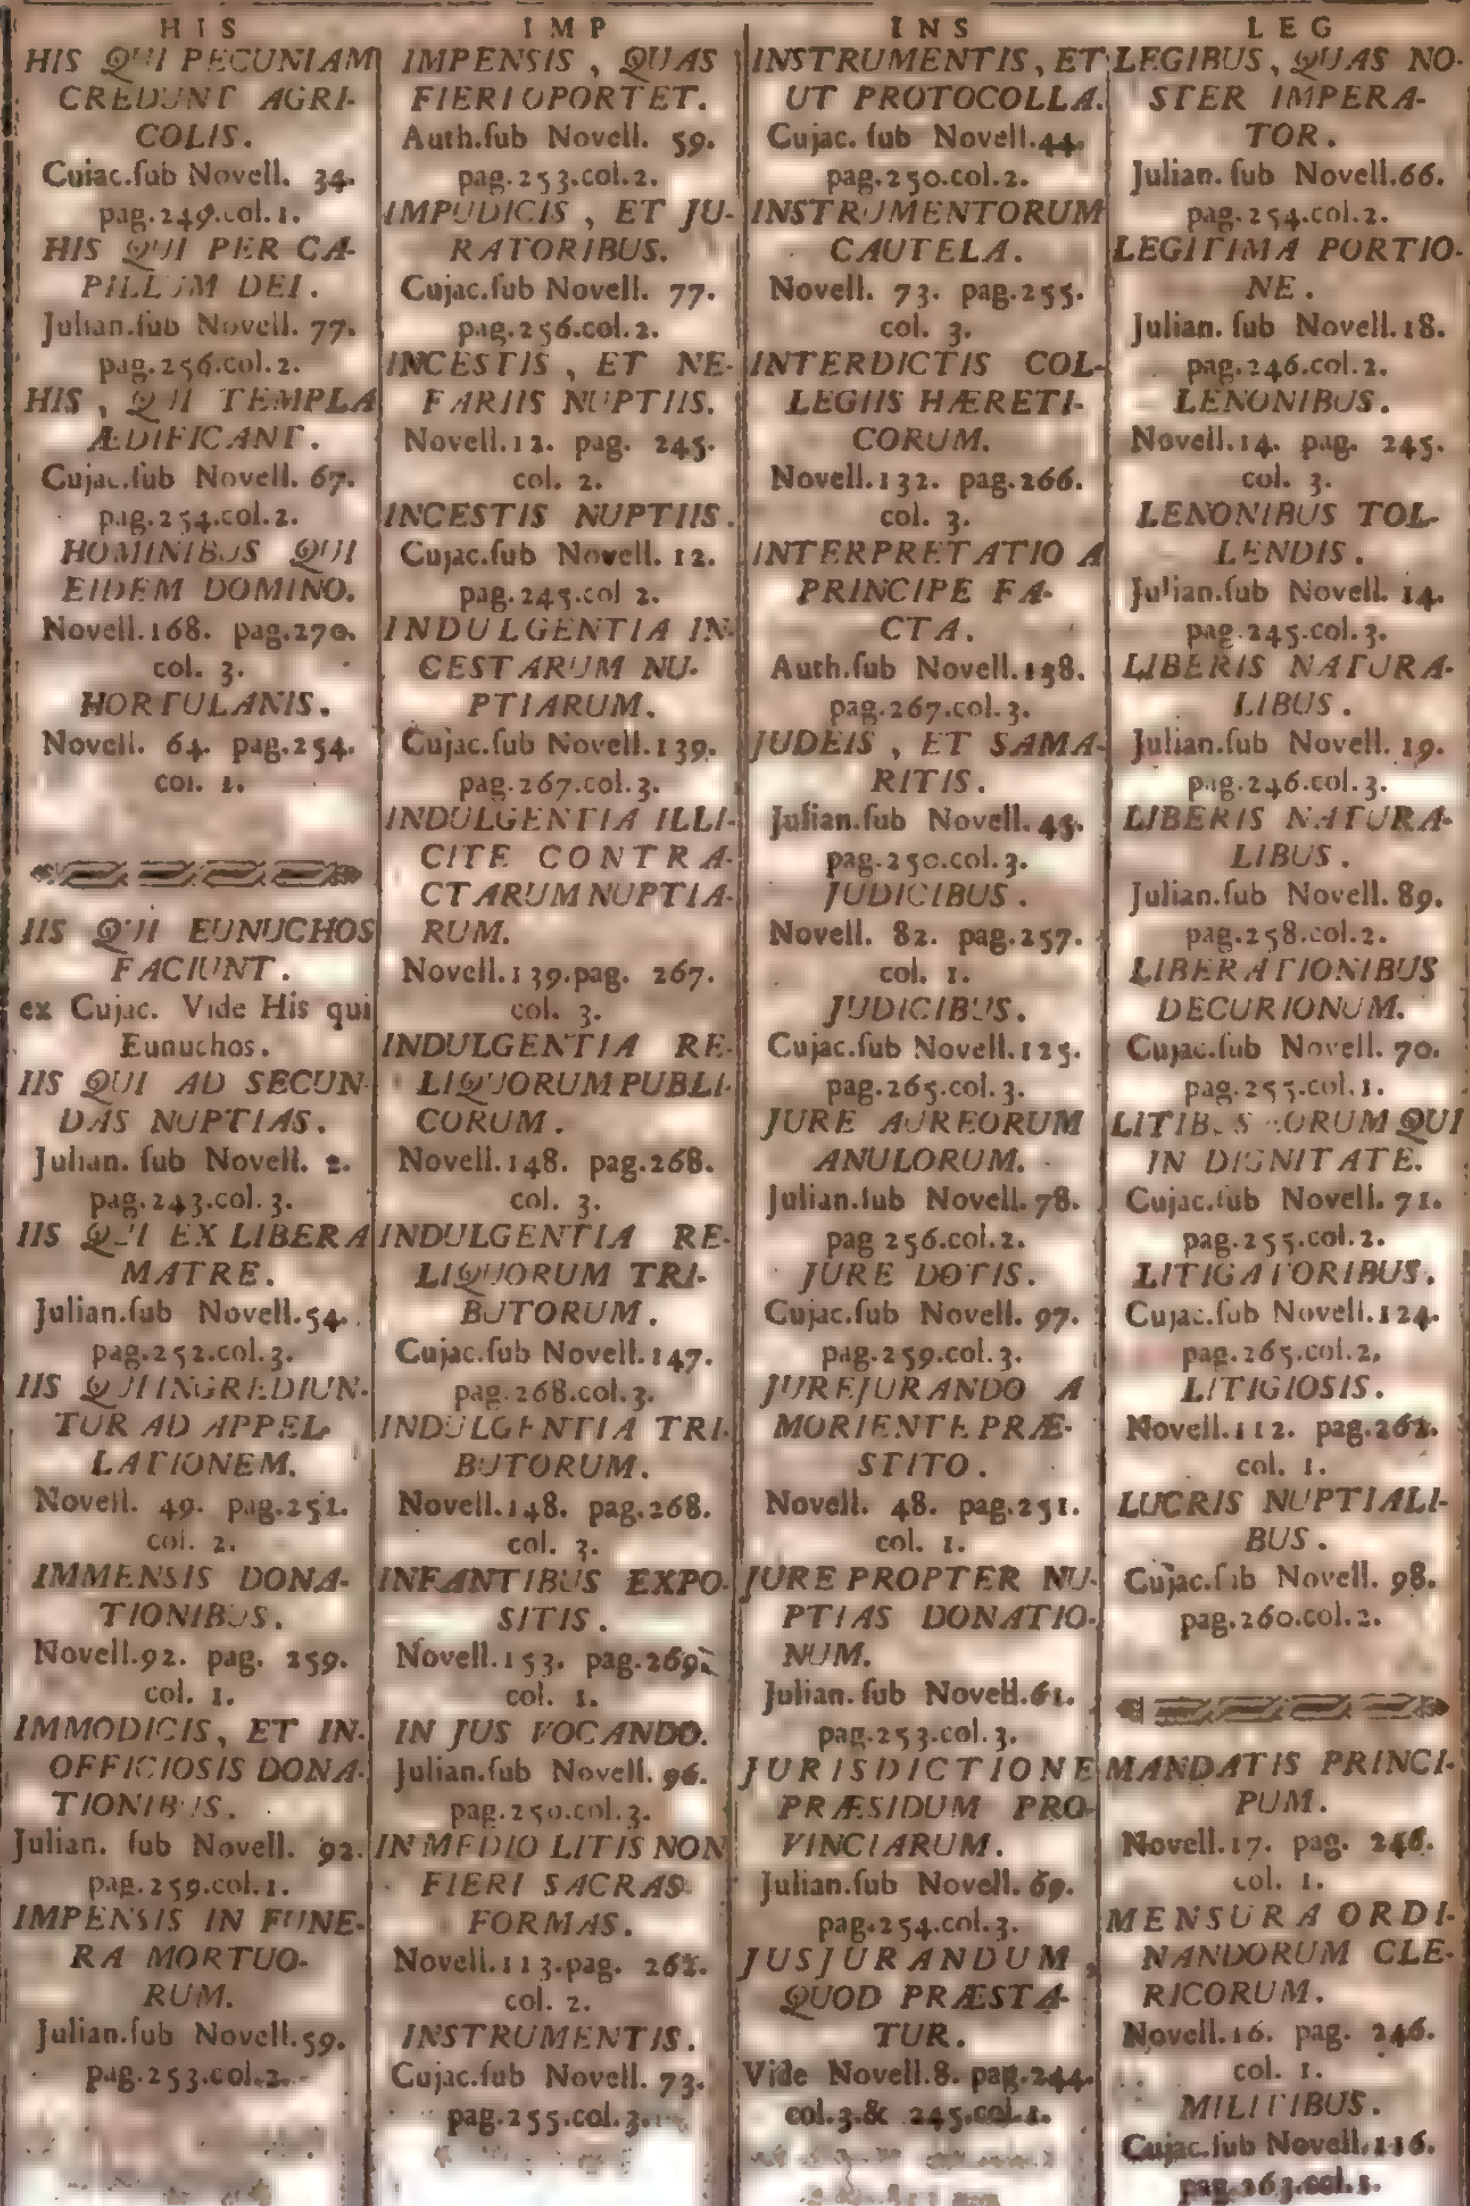 HIS
HIS QUI PECUNIAM
CREDUNT AGRI-
COLIS.
Cuiac.sub Novell. 34.
pag.249.col.1.
HIS QUI PER CA-
PILLUM DEI.
Julian.sub Novell. 77.
pag.256.col.2.
HIS, QUI TEMPLA
ÆDIFICANT.
Cujac.sub Novell. 67.
pag.254.col.2.
HOMINIBUS QUI
EIDEM DOMINO.
Novell.168. pag.270.
col. 3.
HORTULANIS.
Novell. 64. pag.254.
col. 1.
IIS QUI EUNUCHOS
FACIUNT.
ex Cujac. Vide His qui
Eunuchos.
IIS QUI AD SECUN-
DAS NUPTIAS.
Julian. sub Novell. 2.
pag.243.col.3.
IIS QUI EX LIBERA
MATRE.
Julian.sub Novell.54.
pag.252.col.3.
IIS QUI INGREDIUN-
TUR AD APPEL
LATIONEM.
Novell. 49. pag.251.
col. 2.
IMMENSIS DONA-
TIONIBUS.
Novell.92. pag. 259.
col. 1.
IMMODICIS, ET IN-
OFFICIOSIS DONA-
TIONIBUS.
Julian. sub Novell. 92.
pag.259.col.1.
IMPENSIS IN FUNE-
RA MORTUO-
RUM.
Julian.sub Novell.59.
pag.253.col.2.
IMP
IMPENSIS, QUAS
FIERI OPORTET.
Auth.sub Novell. 59.
pag.253.col.2.
IMPUDICIS, ET JU-
RATORIBUS.
Cujac.sub Novell. 77.
pag.256.col.2.
INCESTIS, ET NE-
FARIIS NUPTIIS.
Novell.12. pag. 245.
col. 2.
INCESTIS NUPTIIS.
Cujac.sub Novell. 12.
pag.245.col 2.
INDULGENTIA IN-
CESTARUM NU-
PTIARUM.
Cujac.sub Novell.139.
pag.267.col.3.
INDULGENTIA ILLI-
CITE CONTRA-
CTARUM NUPTIA-
RUM.
Novell.139.pag. 267.
col. 3.
INDULGENTIA RE-
LIQUORUM PUBLI-
CORUM.
Novell.148. pag.268.
col. 3.
INDULGENTIA RE-
LIQUORUM TRI-
BUTORUM.
Cujac.sub Novell.147.
pag.268.col.3.
INDULGENTIA TRI-
BUTORUM.
Novell.148. pag.268.
col. 3.
INFANTIBUS EXPO-
SITIS.
Novell.153. pag.269.
col. 1.
IN JUS VOCANDO.
Julian.sub Novell. 96.
pag.250.col.3.
IN MEDIO LITIS NON
FIERI SACRAS
FORMAS.
Novell.113.pag. 262.
col. 2.
INSTRUMENTIS.
Cujac.sub Novell. 73.
pag.255.col.3.
INS
INSTRUMENTIS, ET
UT PROTOCOLLA.
Cujac. sub Novell.44.
pag.250.col.2.
INSTRUMENTORUM
CAUTELA.
Novell. 73. pag.255.
col. 3.
INTERDICTIS COL-
LEGIIS HÆRETI-
CORUM.
Novell.132. pag.266.
col. 3.
INTERPRETATIO A
PRINCIPE FA-
CTA.
Auth.sub Novell.138.
pag.267.col.3.
JUDEIS, ET SAMA-
RITIS.
Julian.sub Novell.45.
pag.250.col.3.
JUDICIBUS.
Novell. 82. pag.257.
col. 1.
JUDICIBUS.
Cujac.sub Novell.125.
pag.265.col.3.
JURE AUREORUM
ANULORUM.
Julian.sub Novell. 78.
pag 256.col.2.
JURE DOTIS.
Cujac.sub Novell. 97.
pag.259.col.3.
JUREJURANDO A
MORIENTE PRÆ-
STITO.
Novell. 48. pag.251.
col. 1.
JURE PROPTER NU-
PTIAS DONATIO-
NUM.
Julian. sub Novell.61.
pag.253.col.3.
JURISDICTIONE
PRÆSIDUM PRO-
VINCIARUM.
Julian.sub Novell. 69.
pag.254.col.3.
JUSJURANDUM,
QUOD PRÆSTA-
TUR.
Vide Novell.8. pag.244.
col.3.& 245.col.1.
LEG
LEGIBUS, QUAS NO-
STER IMPERA-
TOR.
Julian. sub Novell.66.
pag.254.col.2.
LEGITIMA PORTIO-
NE.
Julian. sub Novell.18.
pag.246.col.2.
LENONIBUS.
Novell.14. pag. 245.
col. 3.
LENONIBUS TOL-
LENDIS.
Julian.sub Novell. 14.
pag.245.col.3.
LIBERIS NATURA-
LIBUS.
Julian.sub Novell. 19.
pag.246.col.3.
LIBERIS NATURA-
LIBUS.
Julian.sub Novell. 89.
pag.258.col.2.
LIBERATIONIBUS
DECURIONUM.
Cujac.sub Novell. 70.
pag.255.col.1.
LITIBUS EORUM QUI
IN DIGNITATE.
Cujac.sub Novell. 71.
pag.255.col.2.
LITIGATORIBUS.
Cujac.sub Novell.124.
pag.265.col.2.
LITIGIOSIS.
Novell.112. pag.262.
col. 1.
LUCRIS NUPTIALI-
BUS.
Cujac.sub Novell. 98.
pag.260.col.2.
MANDATIS PRINCI-
PUM.
Novell.17. pag. 246.
col. 1.
MENSURA ORDI-
NANDORUM CLE-
RICORUM.
Novell.16. pag. 246.
col. 1.
MILITIBUS.
Cujac.sub Novell.116.
pag.263.col.1.